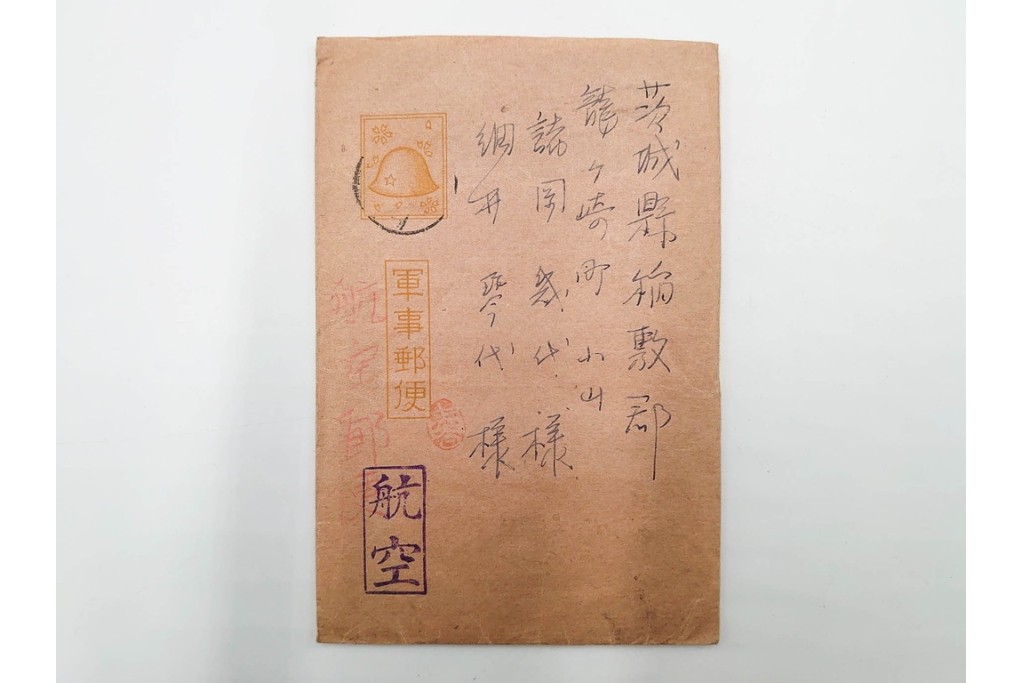 茨城縣稲敷郡
龍ヶ崎町小山
諸岡幾代様
細井琴代様
軍事郵便
航空郵
航空